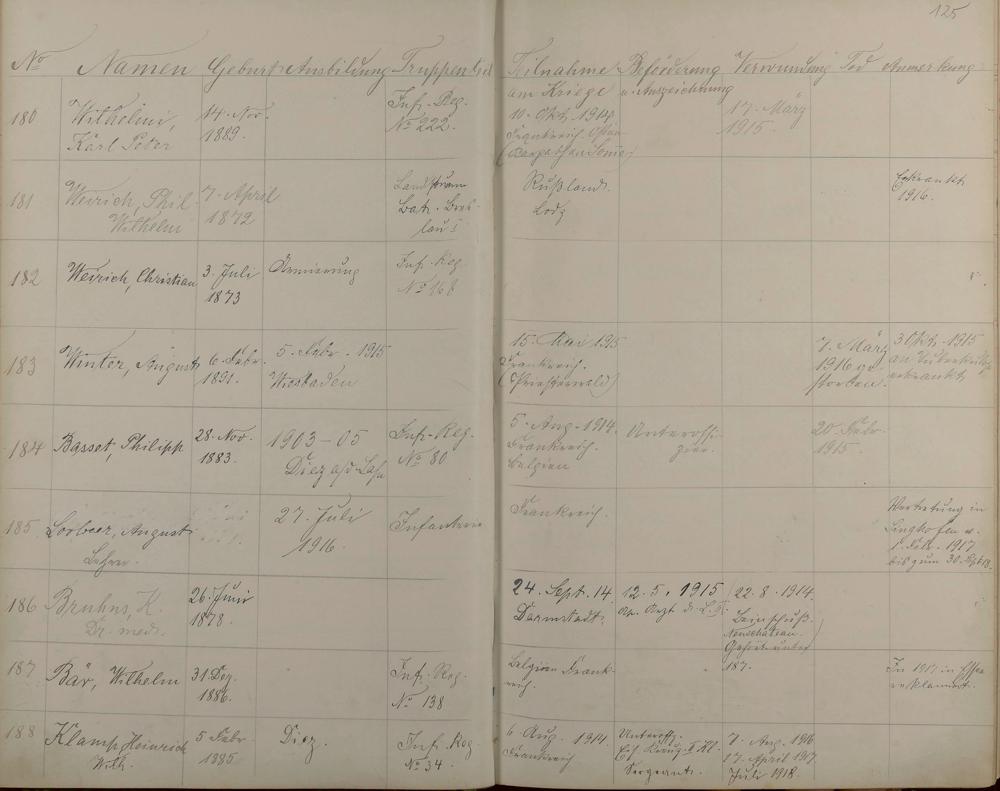 125
No Namen Geburt Ausbildung Truppenteil Teilnahme am Kriege Beförderung u. Auszeichnung Verwundung Tod Anmerkung
180 Wilhelmi, Karl Peter
14. Nov. 1889.
Inf. Reg. No 222.
10. Okt. 1914
Frankreich. Osten
(Karpathen Somme)
17. März 1915.
181 Weirich, Phil. Wilhelm
7. April 1872
Landsturm Batr. Breslau I
Rußland.
Lodz
Erkrankt 1916.
182 Weirich, Christian
3. Juli 1873
Armierung
Inf. Reg. No 168
183 Winter, August
6. Febr. 1891.
5. Febr. 1915
Wiesbaden
15. Mai 1915
Frankreich.
(Priesterwald)
7. März 1916 gestorben.
3 Okt. 1915 an Tuberkulose erkrankt
184 Basset, Philipp
28. Nov. 1883.
1903-05
Diez a/d Lahn
Inf. Reg. No 80
5. Aug. 1914.
Frankreich.
Belgien
Unteroffizier.
20. Febr. 1915.
185 Lorbeer, August
Lehrer.
27. Juli 1916.
Infanterie
Frankreich.
Vertretung in
1. Febr. 1917
bis zum 30. Sept 18.
186 Bruhns, K.
Dr. med.
26. Juni 1878.
24. Sept. 14
Darmstadt.
12. 5. 1915
Arzt d. L. I.
22. 8. 1914
Beinschuß.
Neufchateau.
Gehört unter
187.
187 Bär, Wilhelm
31 Dez. 1886.
Inf. Reg. No 138
Belgien Frankreich.
In 1917 in Essen reklamiert.
188 Klamp Heinrich Wilh.
5 Febr. 1885
Diez.
Inf. Reg. No 34.
6 Aug. 1914.
Frankreich
Unteroffz.
Eis. Kreuz II Kl.
Sergeant.
7. Aug. 1916
17. April 1917
Juli 1918.